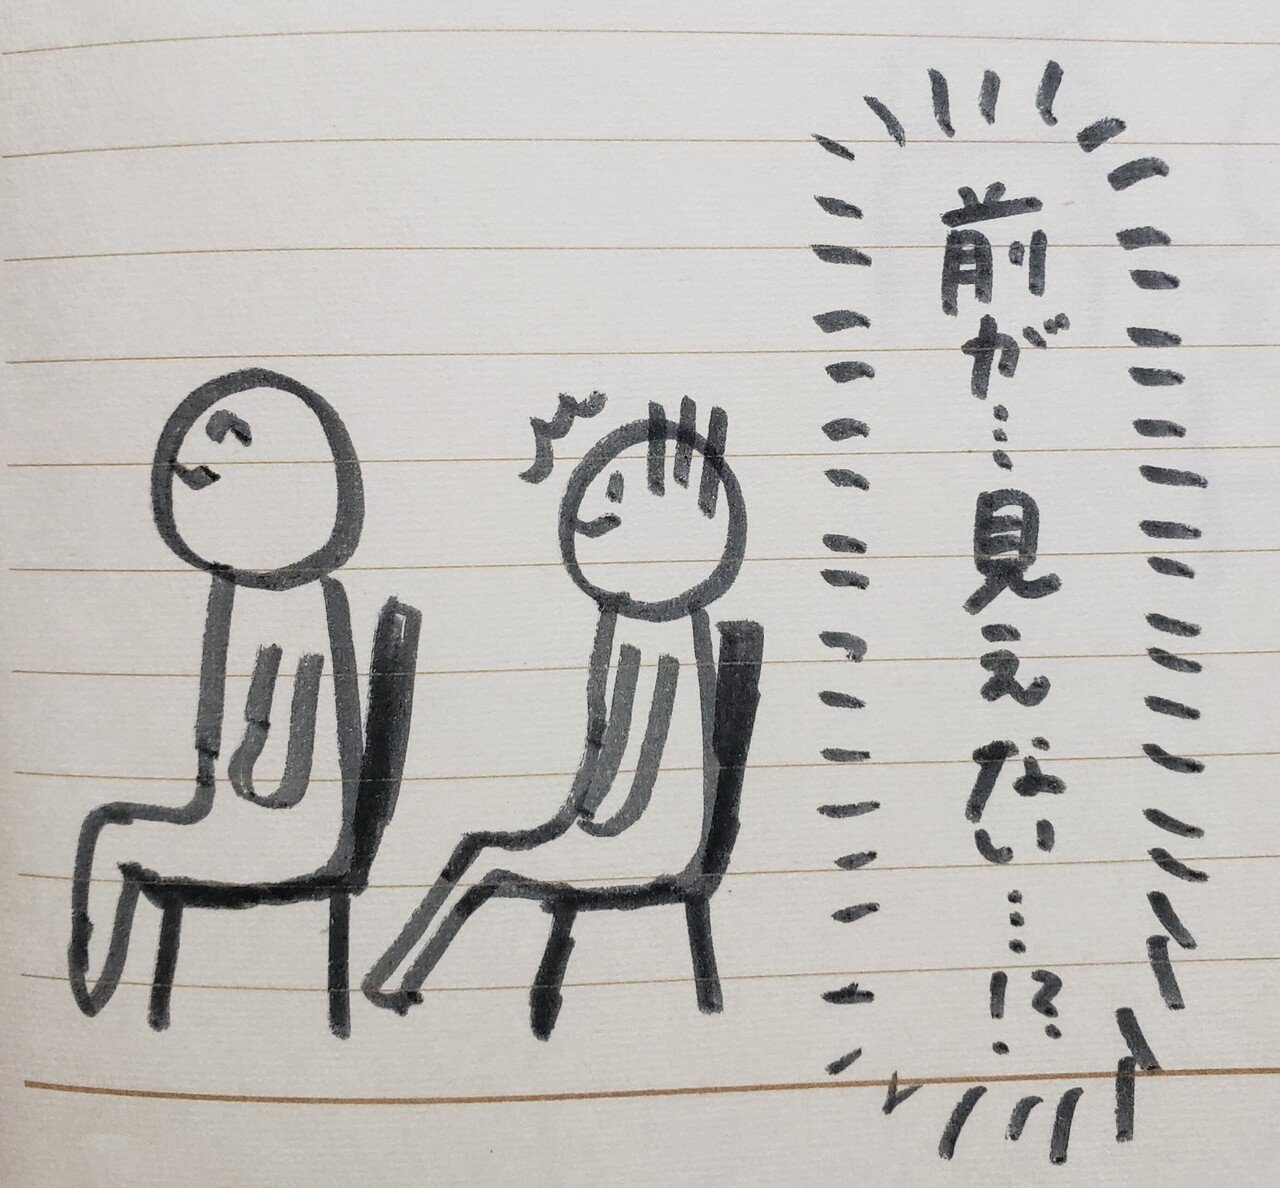 前が…見えない…!?